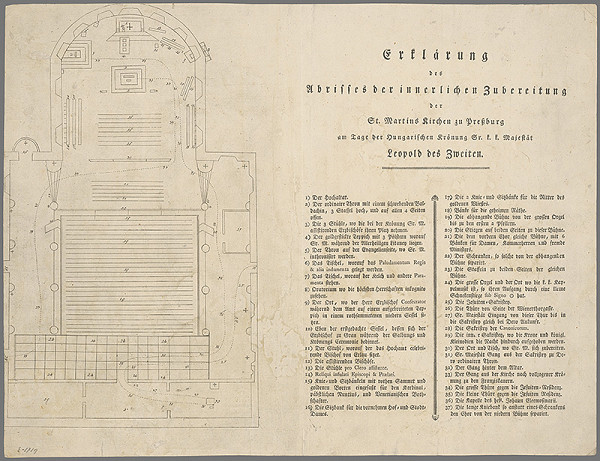 Erklärung
des
Abrisses der innerlichen Zubereitung
der
St. Martins Kirchen zu Preßburg
am Tage der Hungarischen Krönung Sr. k. k. Majestät
Leopold des Zweiten.
1) Der Hochaltar.
2) Der ordinaire Thron mit einem schwebenden Bal-
dachin, 3 Staffel hoch, und auf allen 4 Seiten
offen.
3) Die 3 Stühle, wo die bei der Krönung Sr. M.
assistirenden Erzbischöfe ihren Platz nehmen.
4) Der goldgestickte Teppich mit 3 Pölstern worauf
Sr. M. während der Allerheiligen Litaney liegen.
5) Der Thron auf der Evangelienseite, wo Sr. M.
inthronisirt werden.
6) Das Tischel, worauf das Paludamentum Regis
& alia indumenta gelegt werden.
7) Das Tischel, worauf der Kelch und andere Para-
mente stehen.
8) Oratorium wo die höchsten Herrschaften inkognito
zusehen.
9) Der Ort, wo der Herr Erzbischof Consecrator
während dem Amt auf einem ausgebreiteten Tep-
pich in einem
niedern Sessel si-
tzet.
10) Eben der erstgedachte Sessel, dessen sich der
Erzbischof zu Gran während der Salbungs und
Krönungs Ceremonie bedienet.
11) Der Stuhl, worauf der das Hochamt celebri-
rende Bischof von Erlau sitzet.
12) Die assistirenden Bischöfe.
13) Die Stühle pro Clero assistente.
14) Reliqui infulati Episcopi & Praelati.
15) Knie- und Sitzbänkeln mit rothen Sammet und
goldenen Borten eingefaßt für den Kardinal,
päbstlichen Nuntius, und Venetianischen Both-
schafter.
16) Die Sitzbank für die vornehmen Hof- und Stadt-
Dames.
17) Die 2 Knie- und Sitzbänke für die Ritter des
goldenen Vließes.
18) Bänke für die geheimen Räthe.
19) Die abhangende Bühne von der großen Orgel
bis zu den ersten 2 Pfeilern.
20) Die Stiegen auf beiden Seiten zu dieser Bühne.
21) Die dem vordern Chor gleiche Bühne, mit 4
Bänken für Damen, Kammerherren und fremde
Ministers.
22) Der Schranken, so solche von der abhangenden
Bühne separirt.
23) Die Staffeln zu beiden Seiten der gleichen
Bühne.
24) Die große Orgel und der Ort wo die k. k. Ka-
pelmusik ist, so ihren Aufgang durch eine kleine
Schneckenstiege sub Signo O hat.
25) Die Johannis-Sakristey.
26) Die Thüre von Seite der Wienerthorgasse.
27) Sr. Majestät Eingang von dieser Thür bis in
die Sakristey gleich bei Dero Ankunft.
28) Die Sakristey der Canonicorum.
29) Die inn. r Sakristey, wo die Krone und königl.
Kleinodien die Nacht hindurch aufgehoben werden.
30) Der Ort und Tisch, wo Sr. M. sich zubereiten.
31) Sr. Majestät Gang aus der Sakristey zu De-
ro ordinairen Thron.
32) Der Gang hinter dem Altar.
33) Der Gang aus der Kirche nach vollzogener Krö-
nung zu den Franziskanern.
34) Die große Thüre gegen die Jesuiten-Residenz.
35) Die kleine Thüre gegen die Jesuiten Residenz.
36) Die Kapelle des heil. Johann Eleemosinarii.
37) Die lange Kniebank so anstatt eines Schrankens
den Chor von der niedern Bühne separirt.